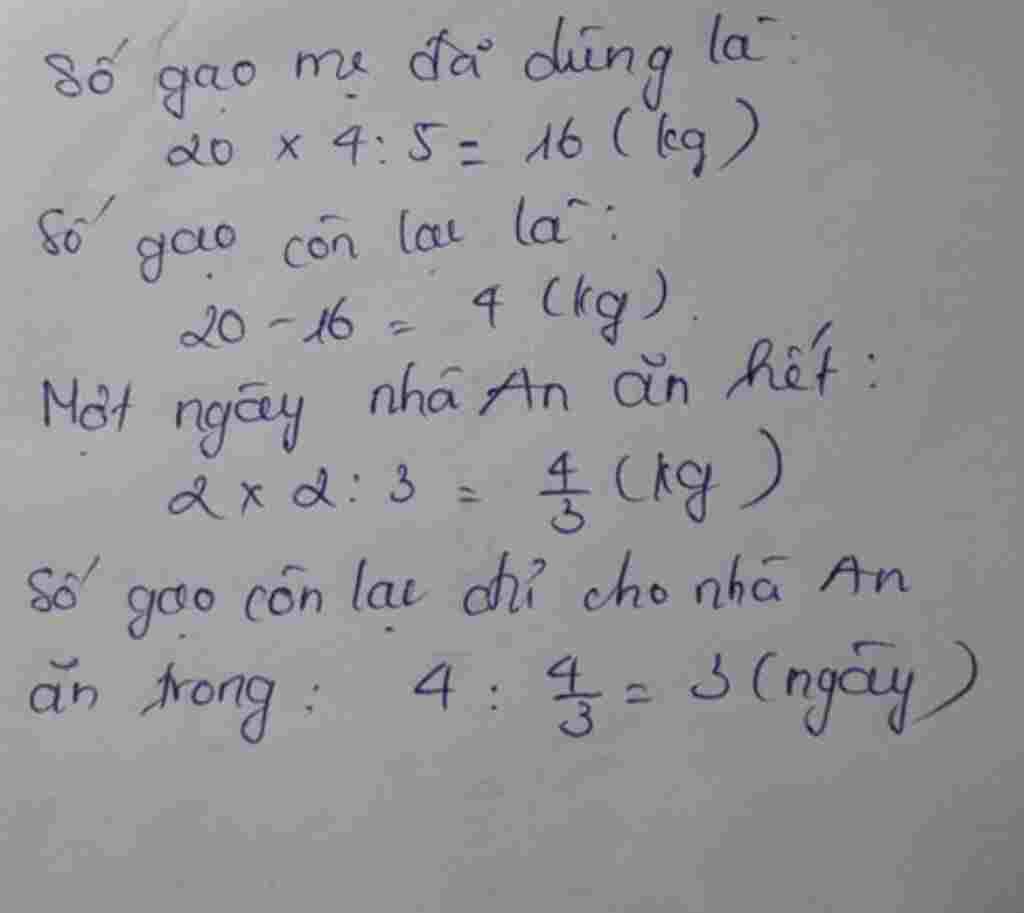 Số gạo mẹ đã dùng là:
20 x 4 : 5 = 16 (kg)
Số gạo còn lại là:
20 - 16 = 4 (kg).
Một ngày nhà An ăn hết:
2 x 2 : 3 = 4/3 (kg)
Số gạo còn lại chỉ cho nhà An
ăn trong: 4 : 4/3 = 3 (ngày)